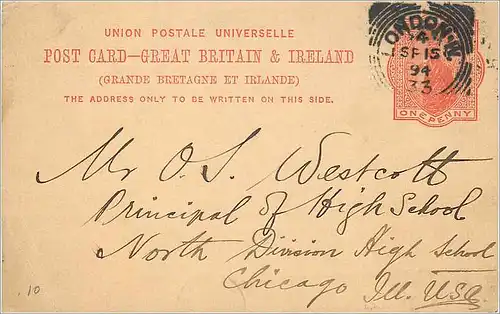 UNION POSTALE UNIVERSELLE
POST CARD—GREAT BRITAIN & IRELAND
(GRANDE BRETAGNE ET IRLANDE)
THE ADDRESS ONLY TO BE WRITTEN ON THIS SIDE.
LONDON.W.
SP 15
94
33
ONE PENNY
Mr O. S. Westcott
Principal of High School
North Division High School
Chicago Ill. USA
.10